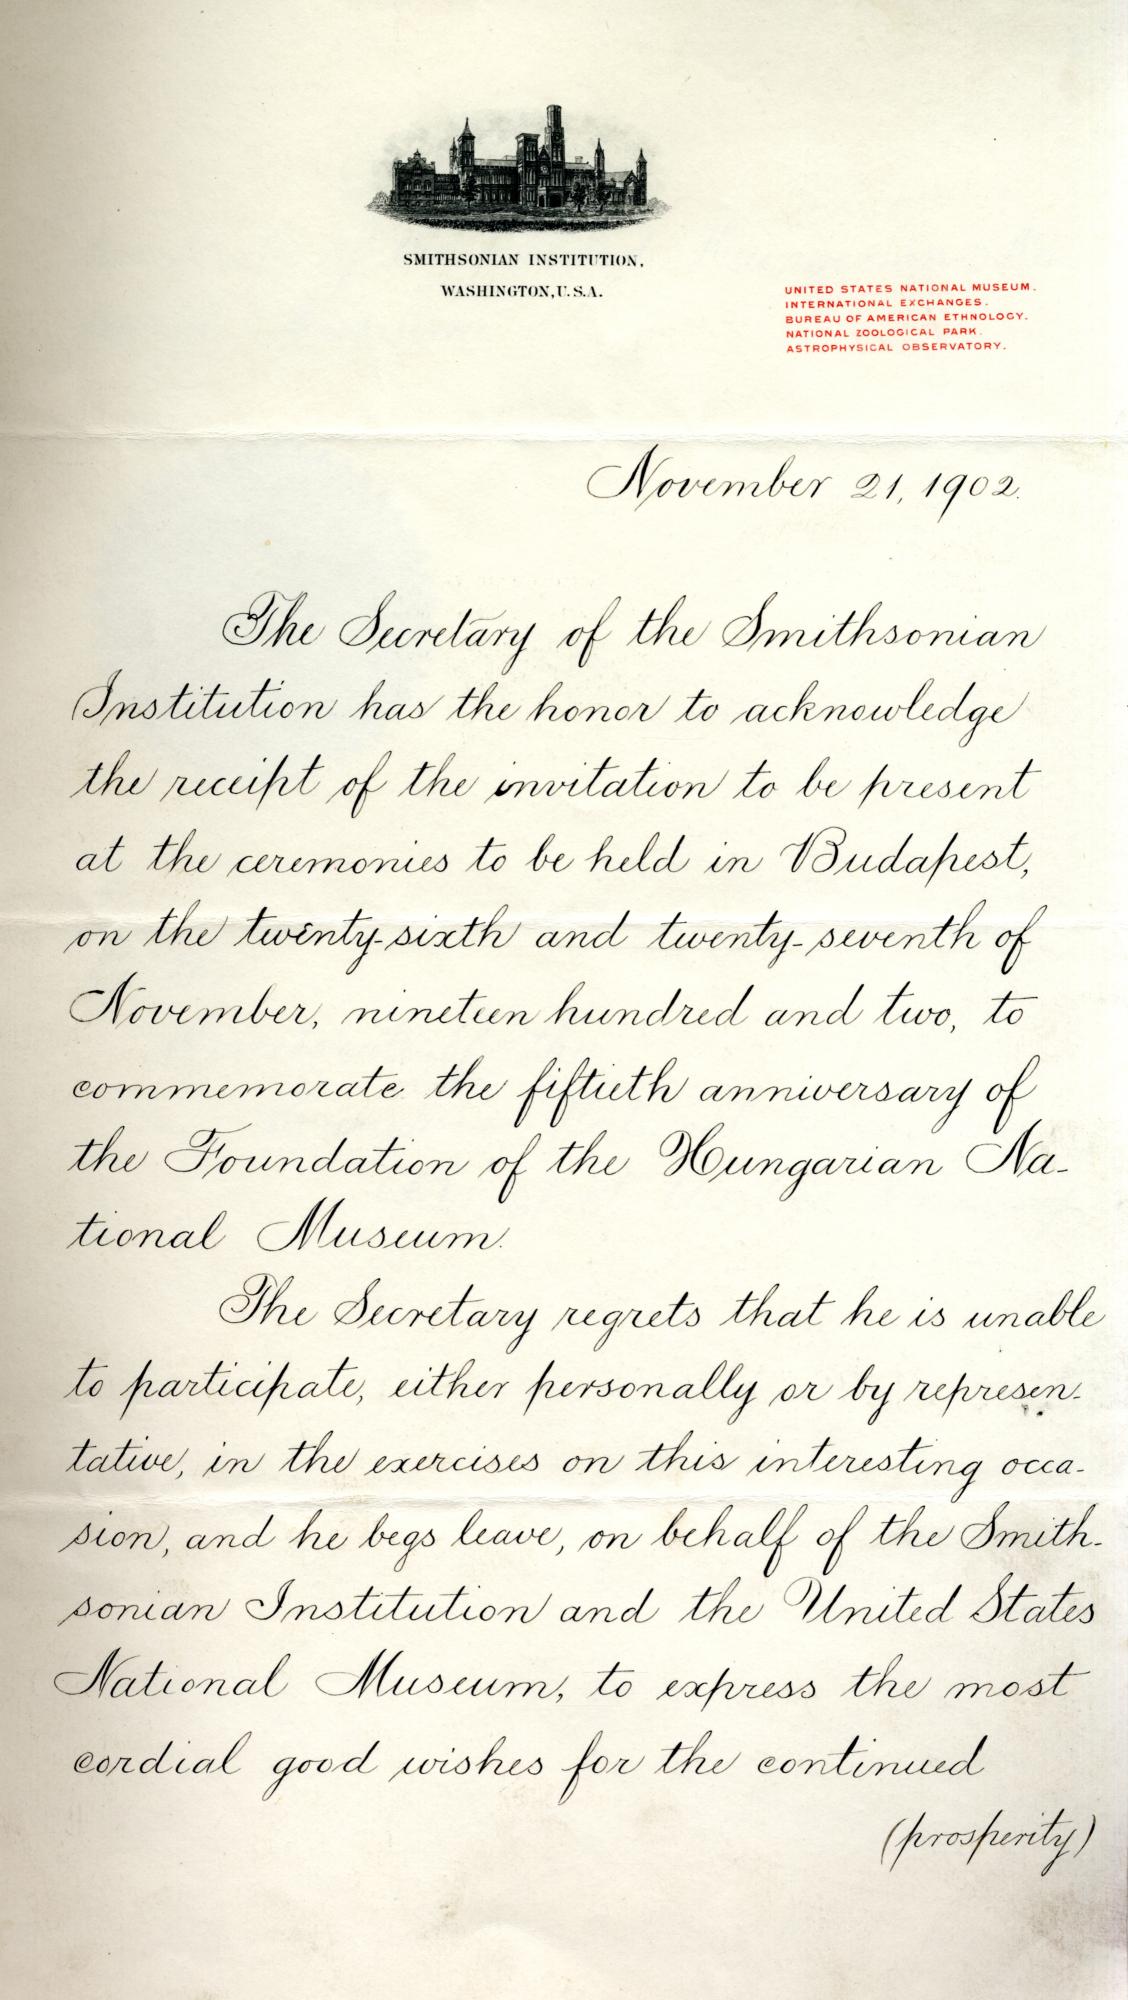 SMITHSONIAN INSTITUTION,
WASHINGTON, U.S.A.
UNITED STATES NATIONAL MUSEUM.
INTERNATIONAL EXCHANGES.
BUREAU OF AMERICAN ETHNOLOGY.
NATIONAL ZOOLOGICAL PARK.
ASTROPHYSICAL OBSERVATORY.
November 21, 1902.
The Secretary of the Smithsonian
Institution has the honor to acknowledge
the receipt of the invitation to be present
at the ceremonies to be held in Budapest,
on the twenty-sixth and twenty-seventh of
November, nineteen hundred and two, to
commemorate the fiftieth anniversary of
the Foundation of the Hungarian Na-
tional Museum.
The Secretary regrets that he is unable
to participate, either personally or by represen-
tative, in the exercises on this interesting occa-
sion, and he begs leave, on behalf of the Smith-
sonian Institution and the United States
National Museum, to express the most
cordial good wishes for the continued
(prosperity)